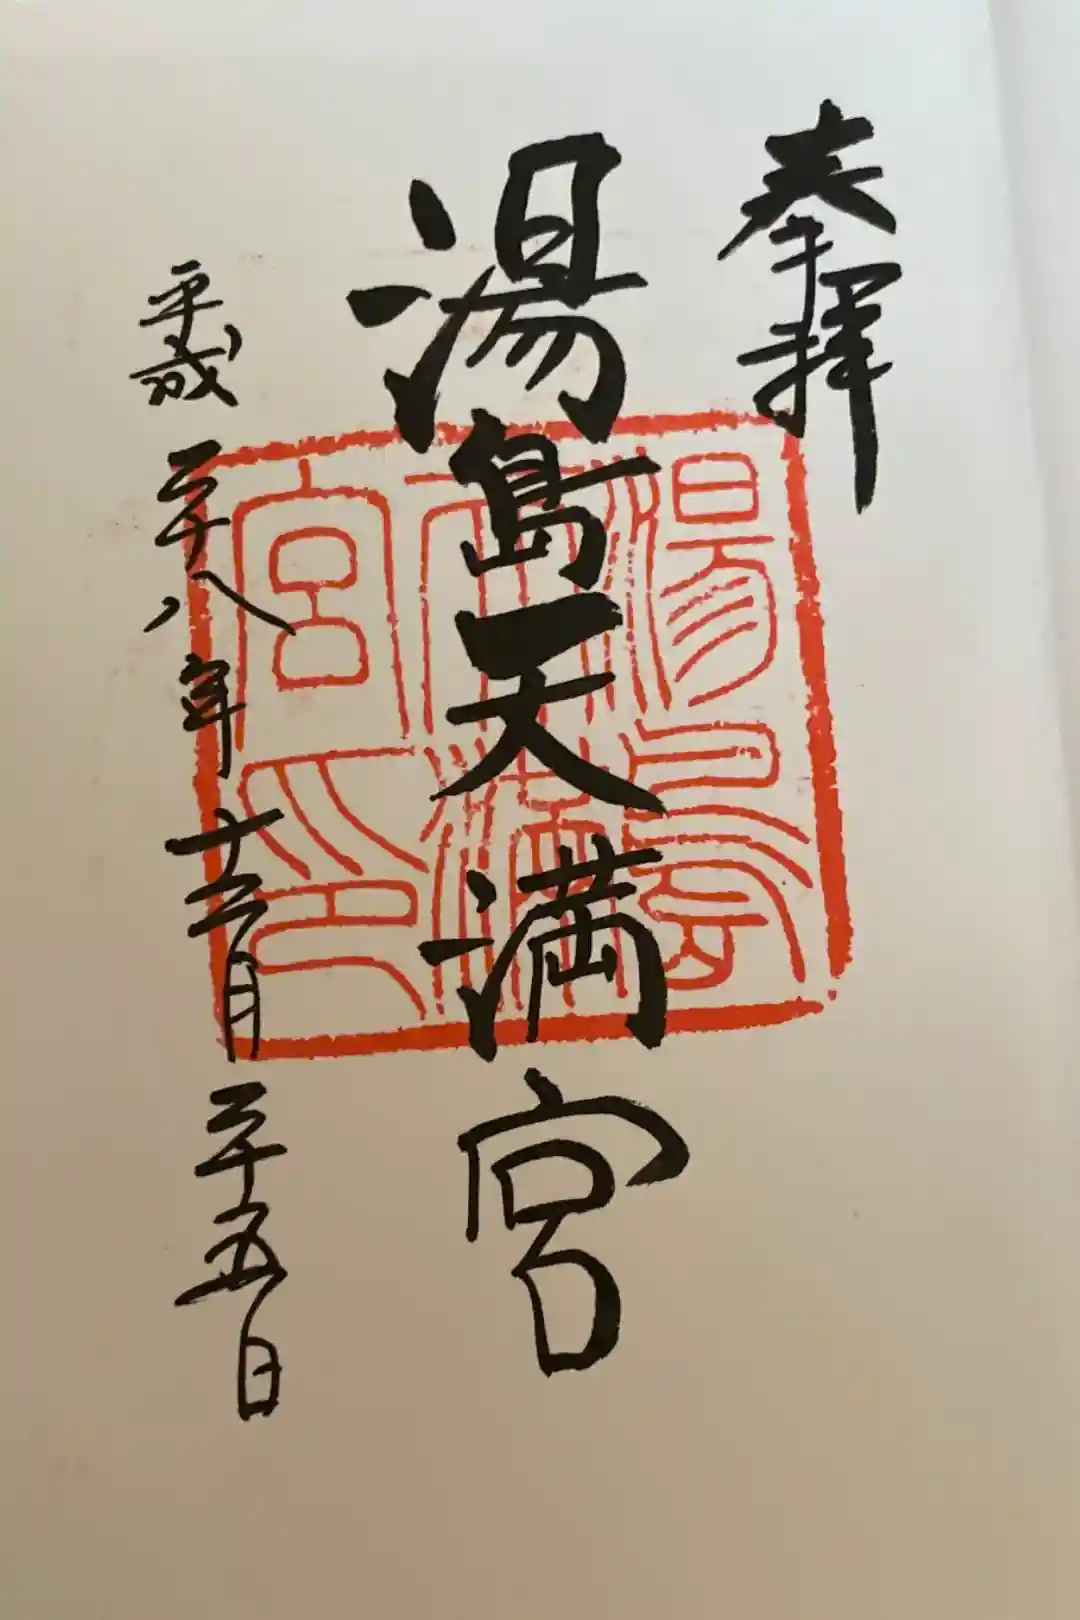 奉拝
湯島天満宮
湯島天満宮印
平成二十八年十二月二十五日